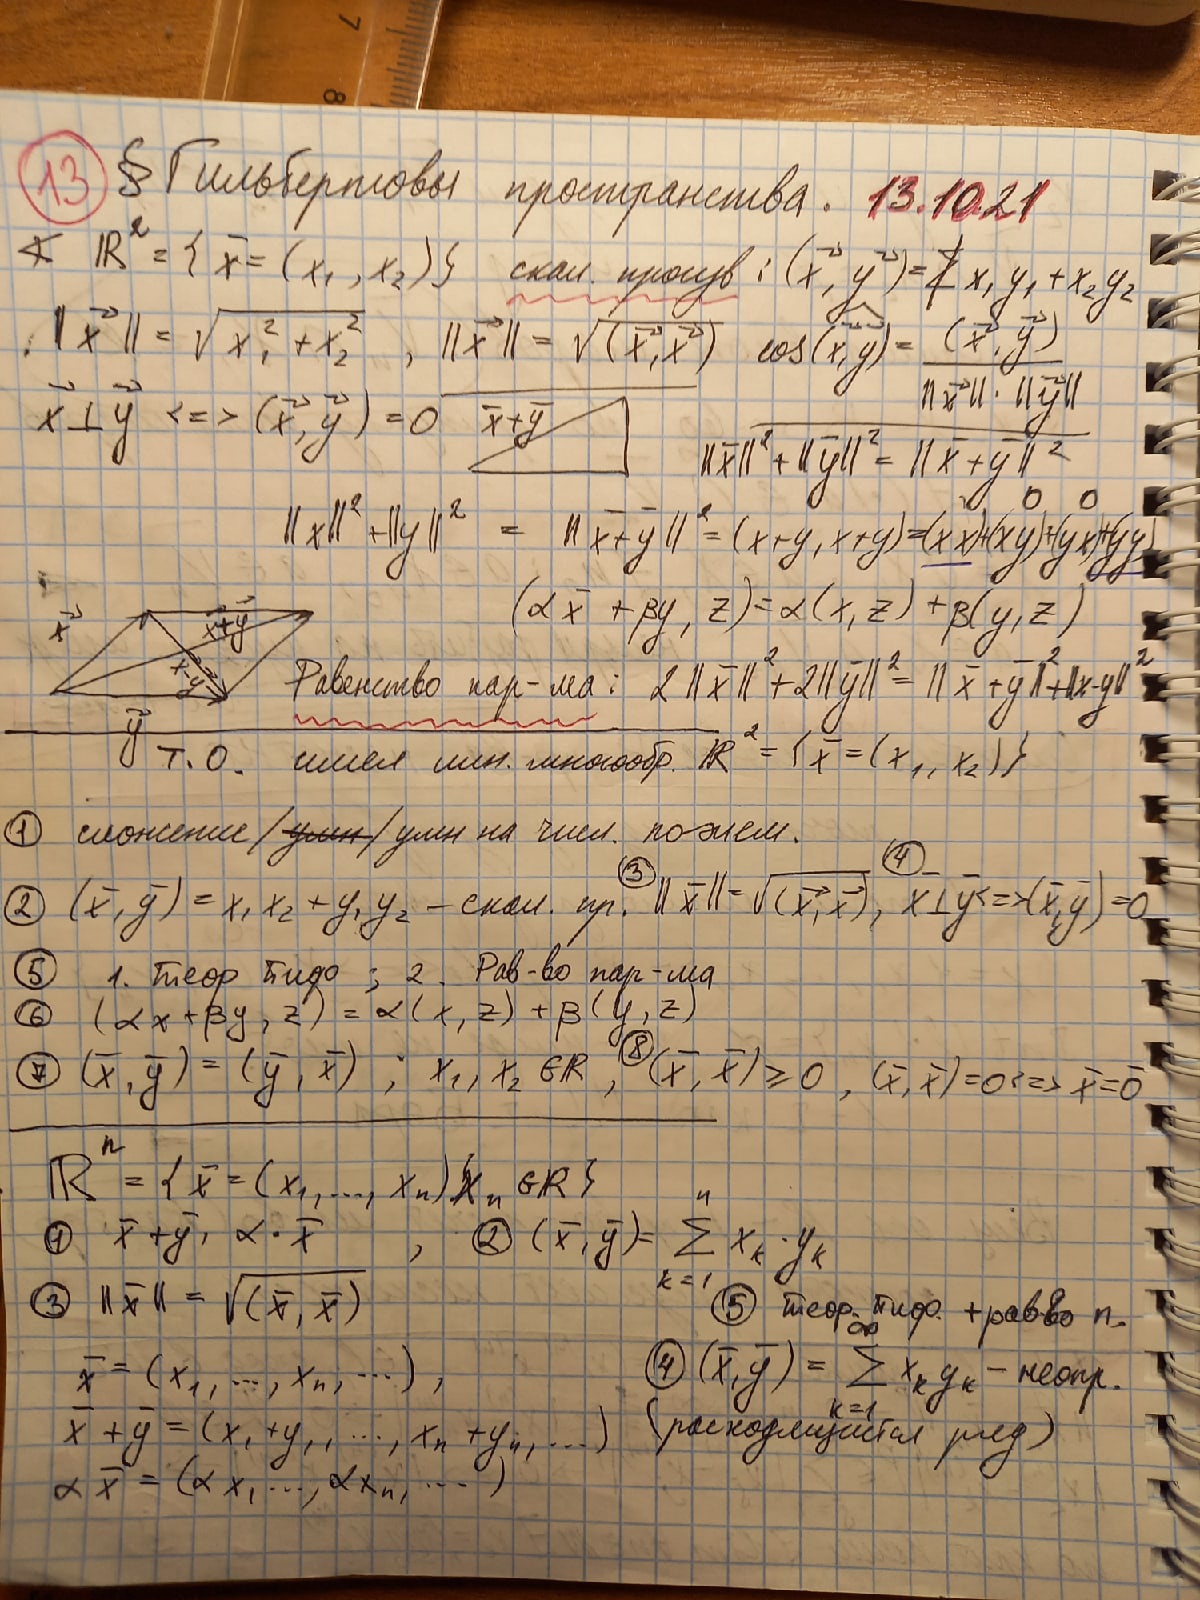 7
8
13 § Гильбертовы пространства. 13.10.21
∢ ℝ² = { x̄ = (x₁, x₂)} скал. произв : (x⃗, y⃗) = x₁y₁ + x₂y₂
‖x⃗‖ = √(x₁² + x₂²) , ‖x⃗‖ = √(x⃗, x⃗) cos(x⃗, y⃗) = (x⃗, y⃗) / ‖x⃗‖ · ‖y⃗‖
x⃗ ⊥ y⃗ <=> (x⃗, y⃗) = 0 x̄+ȳ
‖x̄‖² + ‖ȳ‖² = ‖x̄ + ȳ‖²
0 0
‖x‖² + ‖y‖² = ‖x̄+ȳ‖² = (x+y, x+y) = (xx)+(xy)+(yx)+(yy)
(αx̄ + βy, z) = α(x, z) + β(y, z)
x⃗ x⃗+y⃗
x⃗-y⃗
Равенство пар-ма : 2‖x̄‖² + 2‖ȳ‖² = ‖x̄ + ȳ‖² + ‖x-y‖²
y⃗
Т.О. имеем лин. многообр. ℝ² = { x̄ = (x₁, x₂)}
① сложение / умн / умн на числ. по-элем.
② (x̄, ȳ) = x₁x₂ + y₁y₂ – скал. пр. ③ ‖x̄‖ = √(x⃗, x⃗), ④ x̄⊥ȳ <=> (x̄, ȳ) = 0
⑤ 1. теор Пифо ; 2. Рав-во пар-ма
⑥ (αx + βy, z) = α(x, z) + β(y, z)
⑦ (x̄, ȳ) = (ȳ, x̄) ; x₁, x₂ ∈ ℝ , ⑧ (x̄, x̄) ≥ 0 , (x̄, x̄) = 0 <=> x̄ = 0̄
ℝⁿ = { x̄ = (x₁, ..., xₙ) xₙ ∈ ℝ }
① x̄ + ȳ, α·x̄ , ② (x̄, ȳ) = ∑ₖ₌₁ⁿ xₖ·yₖ
③ ‖x̄‖ = √(x̄, x̄) ⑤ теор. Пиф. + рав-во п.
x̄ = (x₁, ..., xₙ, ...) , ④ (x̄, ȳ) = ∑ₖ₌₁^∞ xₖyₖ – неопр.
x̄ + ȳ = (x₁ + y₁, ..., xₙ + yₙ, ...) (расходящийся ряд)
αx̄ = (αx₁ ..., αxₙ, ...)